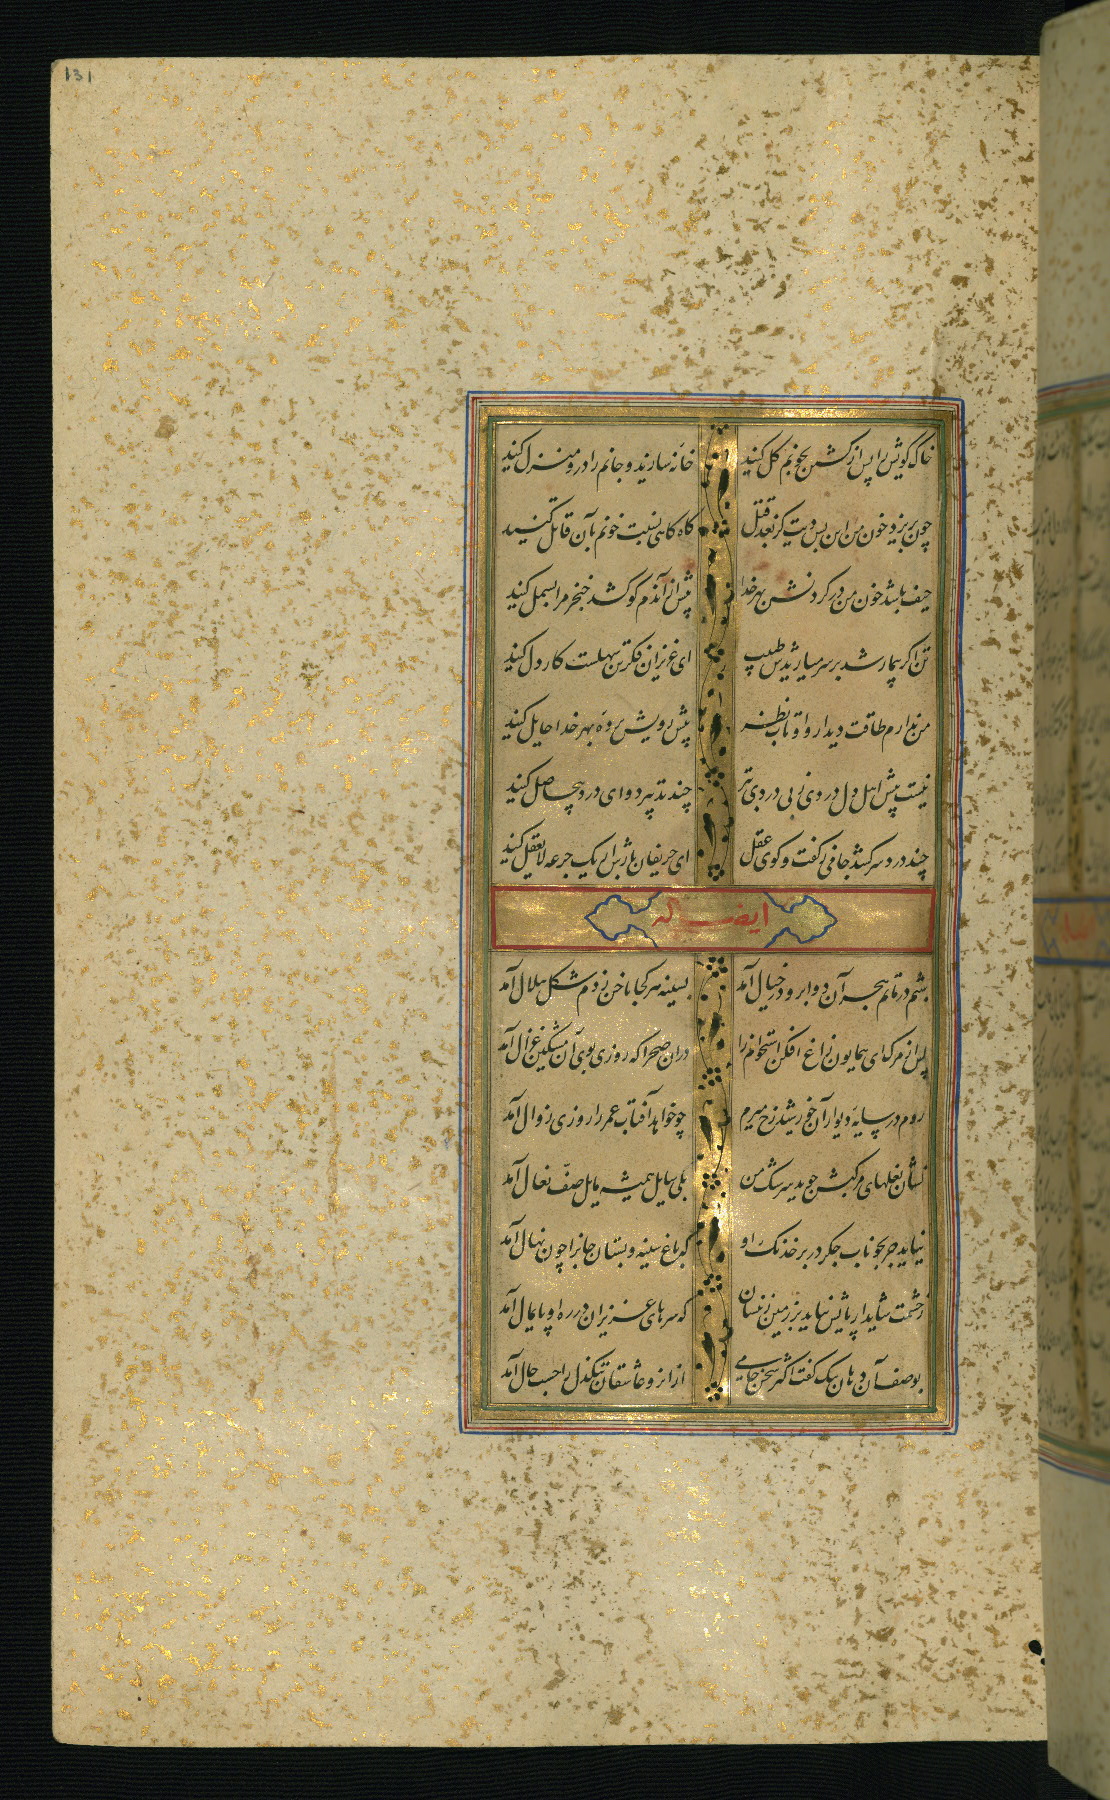 131
خاک کویش را پس از کشتن بخونم گل کنید
خانه سازید و جانم را در و منزل کنید
چون بریزد خون من این بس دیت کز بعد قتل
گاه گاهی نسبت خونم بآن قاتل کنید
حیف باشد خون من در گردنش بهر خدا
پیش از آندم کو کشد خنجر مرا بسمل کنید
تن اگر بیمار شد بر سر میاریدش طبیب
ای عزیزان فکر تن سهلست کار دل کنید
من ندارم طاقت دیدار و تاب نظر
پیش رویش پرده بهر خدا حایل کنید
نیست پیش اهل دل دردی ز بی دردی بتر
چند تدبیر دوای درد بیحاصل کنید
چند درد سر کشد جامی ز گفت و کوی عقل
ای حریفان بازش از یک جرعه لا یعقل کنید
ایضا له
بشم در ماتم هجر آن دو ابرو در خیال آمد
بسینه هر کجا ناخن زدم شکل هلال آمد
پس از مرگ ای همایون زاغ افکن استخوانم را
در ان صحرا که روزی بوی آن مشکین غزال آمد
روم در سایه دیوار آن خورشید رخ میرم
چو خواهد آفتاب عمر را روزی زوال آمد
نشان نعلهای مرکبش جوید سرشک من
بلی سایل همیشه مایل صف نعال آمد
نیاید جز بخوناب جگر در بر خدنک او
که باغ سینه و بستان جانرا چون نهال آمد
ز حشمت شاید ار پایش نیاید بر زمین زینسان
که سرهای عزیزان در ره او پایمال آمد
بوصف آن دهان تنک گفت اکثر سخن جامی
از انرو عاشقان تنکدل را حسب حال آمد